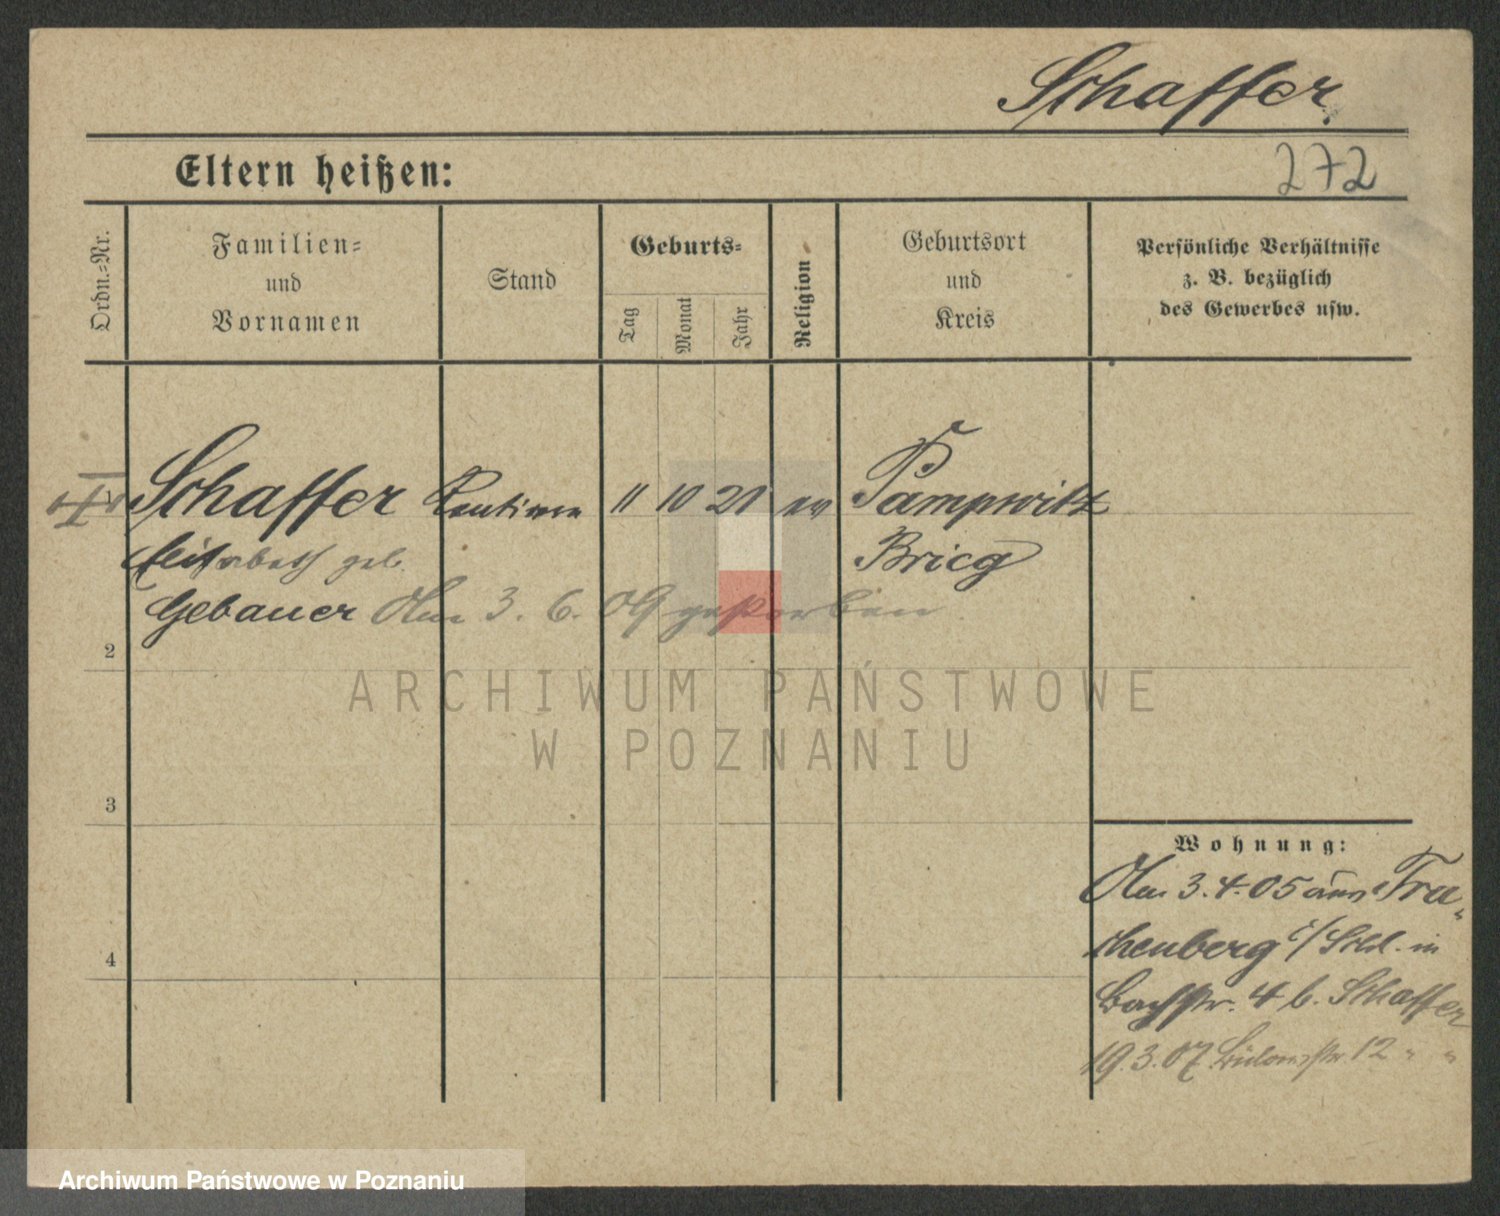 Schaffer
Eltern heißen:
272
Ordn.-Nr.
Familien-
und
Vornamen
Stand
Geburts-
Tag
Monat
Jahr
Religion
Geburtsort
und
Kreis
Persönliche Verhältnisse
z. B. bezüglich
des Gewerbes usw.
Schaffer Rentiere 11 10 21 ev Pampwitz
Elisabeth geb. Brieg
Gebauer Am 3. 6. 09 gestorben
2
ARCHIWUM PAŃSTWOWE
W POZNANIU
3
4
Wohnung:
Am 3.4.05 aus Tra-
chenberg i/Schl. in
Bachstr. 4 b. Schaffer
19.3.07 Bülowstr. 12 " "
Archiwum Państwowe w Poznaniu